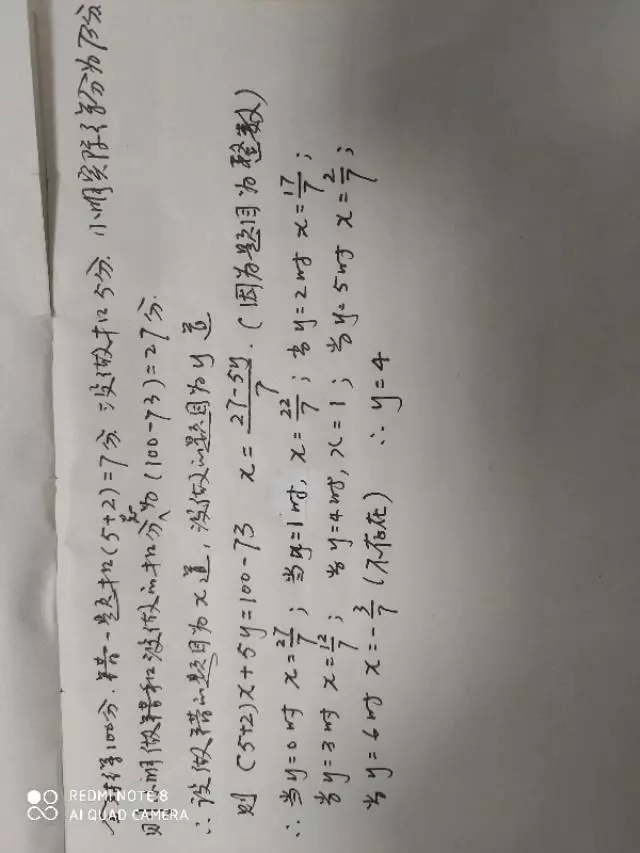 全对得100分. 错一题扣(5+2)=7分 没做扣5分. 小明实际得分为73分
则小明做错和没做的扣分和为(100-73)=27分.
∴设做错的题目为x道, 没做的题目为y道
则 (5+2)x+5y=100-73 x=27-5y/7. (因为题目为整数)
∴当y=0时 x=27/7; 当y=1时, x=22/7; 当y=2时 x=17/7;
当y=3时 x=12/7; 当y=4时, x=1; 当y=5时 x=2/7;
当y=6时 x=-3/7 (不存在) ∴y=4
REDMI NOTE 8
AI QUAD CAMERA